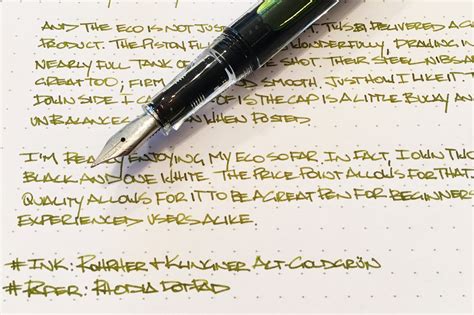 AND THE ECO IS NOT JUST THIS DELIVERED AS
PRODUCT. THE PISTON WONDERFULLY, DRAWING IN
NEARLY FULL TANK OF ONE SHOT. THEIR STEEL NIBS AR
GREAT TOO, FIRM AND SMOOTH. JUST HOW I LIKE IT
DOWN SIDE OF IS THE CAP IS A LITTLE BULKY AN
UNBALANCED WHEN POSTED
I'M REALLY ENJOYING MY ECO SO FAR. IN FACT, I OWN TW
BLACK AND ONE WHITE. THE PRICE POINT ALLOWS FOR THAT.
QUALITY ALLOWS FOR IT TO BE A GREAT PEN FOR BEGINNERS
EXPERIENCED USERS ALIKE.
#INK: ROHRHER + KLINGINER ALT-GOLDGRÜN
#PAPER: RHODIA DOTPAD